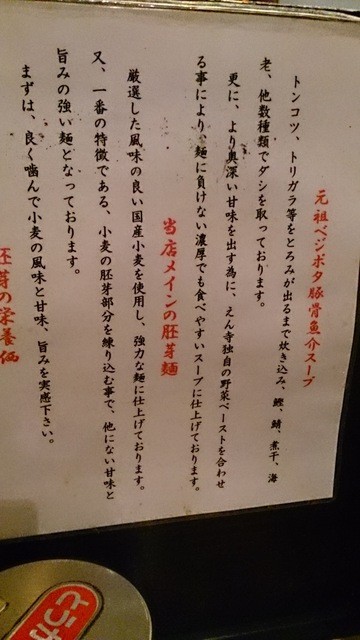 元祖ベジポタ豚骨魚介スープ
トンコツ、トリガラ等をとろみが出るまで炊き込み、鰹、鯖、煮干、海
老、他数種類でダシを取っております。
更に、より奥深い甘味を出す為に、えん寺独自の野菜ペーストを合わせ
る事により、麺に負けない濃厚でも食べやすいスープに仕上げております。
当店メインの胚芽麺
厳選した風味の良い国産小麦を使用し、強力な麺に仕上げております。
又、一番の特徴である、小麦の胚芽部分を練り込む事で、他にない甘味と
旨みの強い麺となっております。
まずは、良く噛んで小麦の風味と甘味、旨みを実感下さい。
胚芽の栄養価